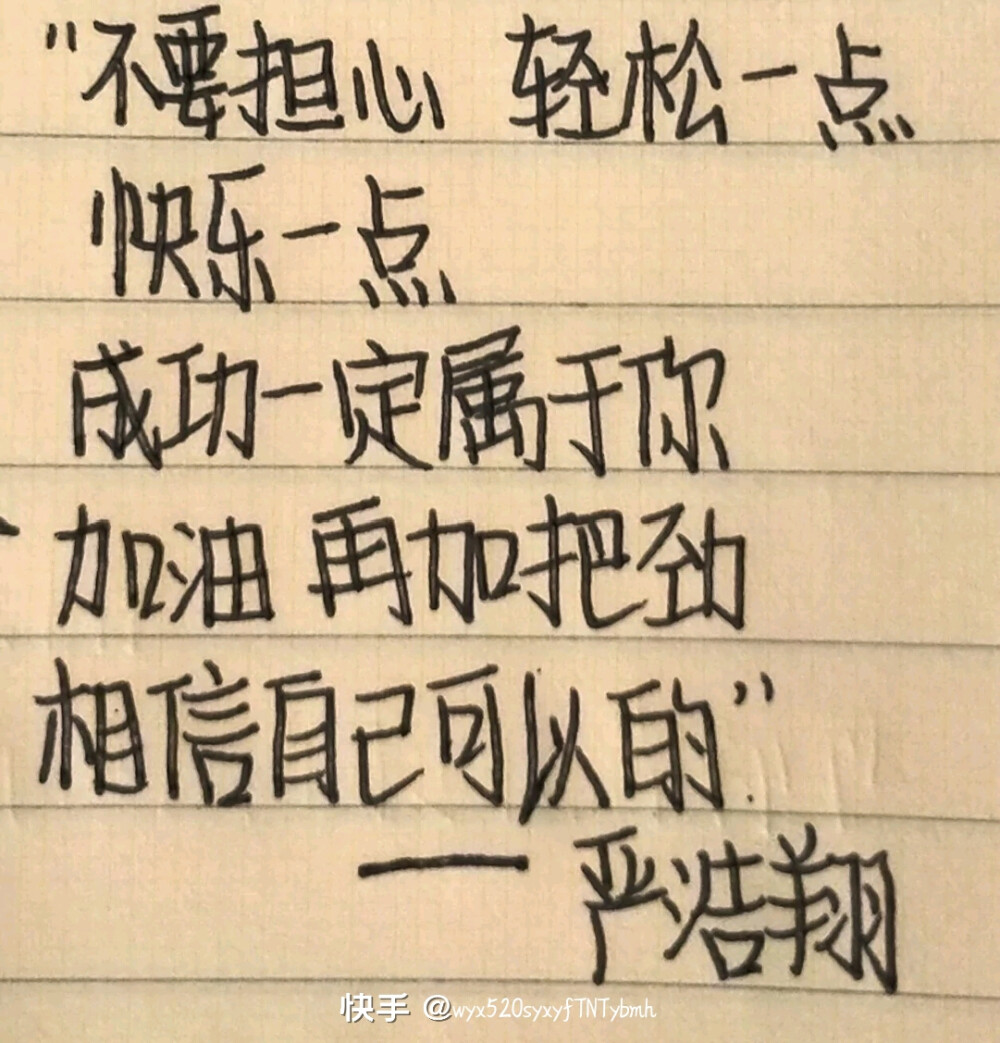 "不要担心 轻松一点
快乐一点
成功一定属于你
加油 再加把劲
相信自己可以的"
—— 严浩翔
快手 @wyx520syxyfTNTybmh